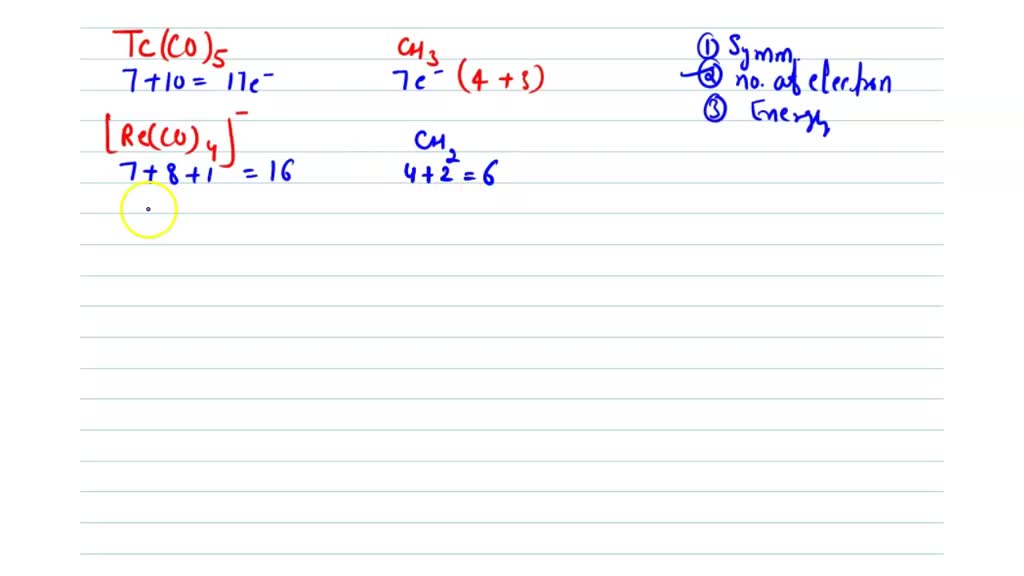 Tc(CO)5 CH3 ① Symm.
7+10 = 17e⁻ 7e⁻ (4 + 3) ② no. of electron
③ Energy
[Re(CO)4]⁻ CH2
7 + 8 + 1 = 16 4 + 2 = 6